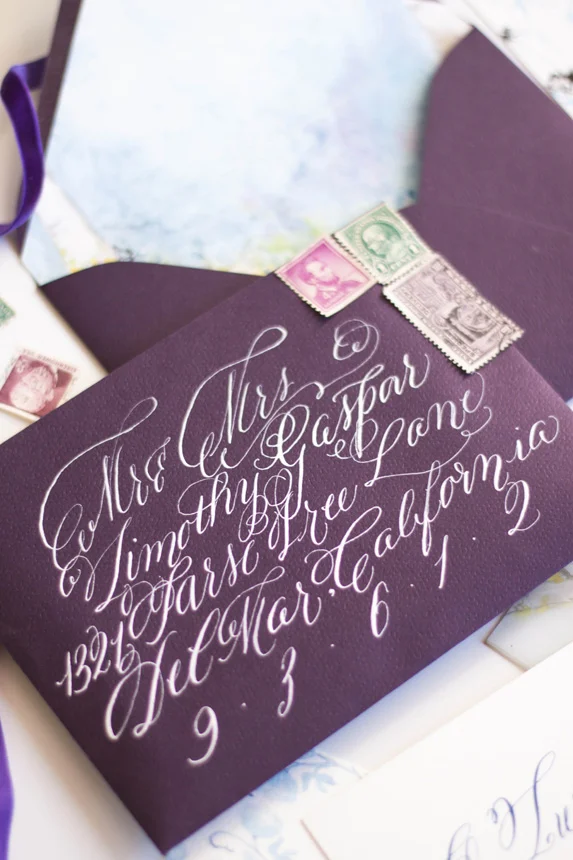 Mr & Mrs
Timothy J Gaspar
1321 Parse Tree Lane
Del Mar, California
9 · 3 · 6 · 1 · 2